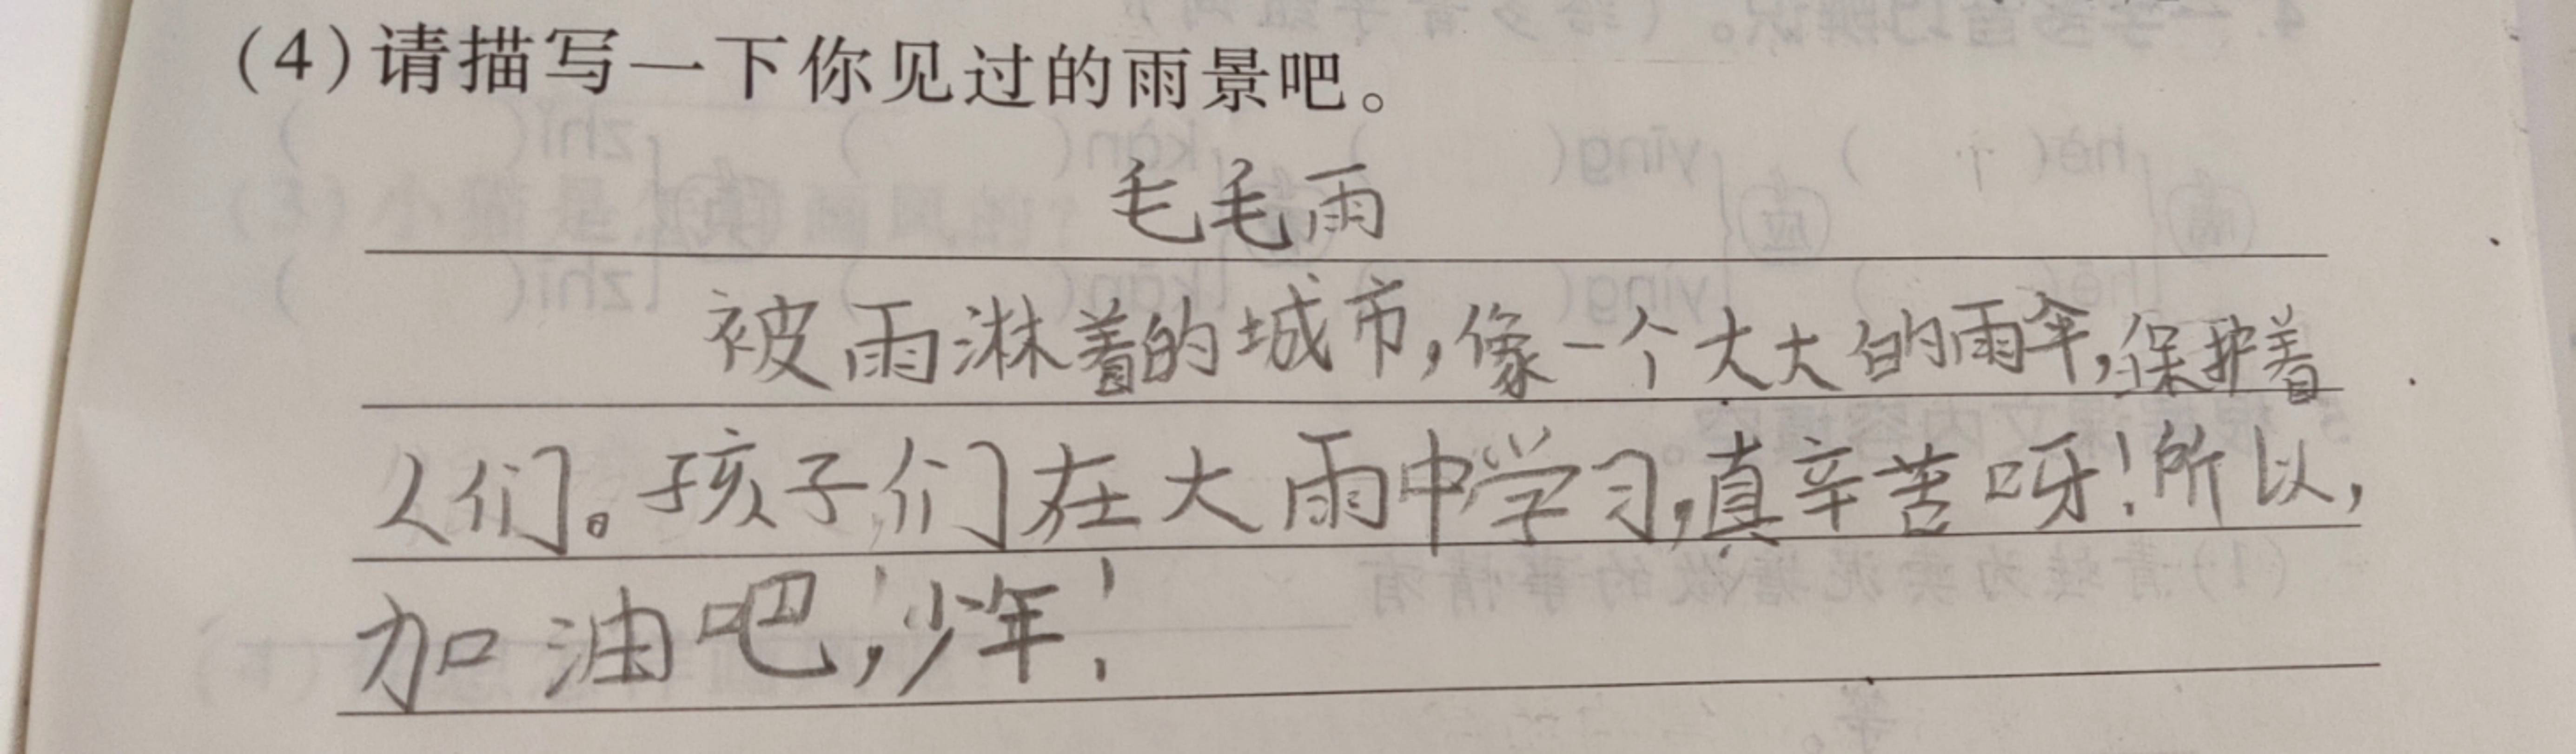 (4)请描写一下你见过的雨景吧。
毛毛雨
被雨淋着的城市,像一个大大的雨伞,保护着
人们。孩子们在大雨中学习,真辛苦呀!所以,
加油吧,少年!